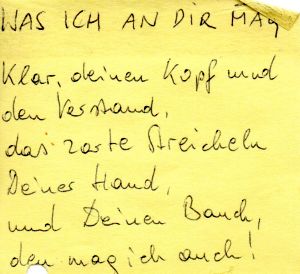 WAS ICH AN DIR MAG
Klar, deinen Kopf und
den Verstand,
das zarte Streicheln
Deiner Hand,
und Deinen Bauch,
den mag ich auch!